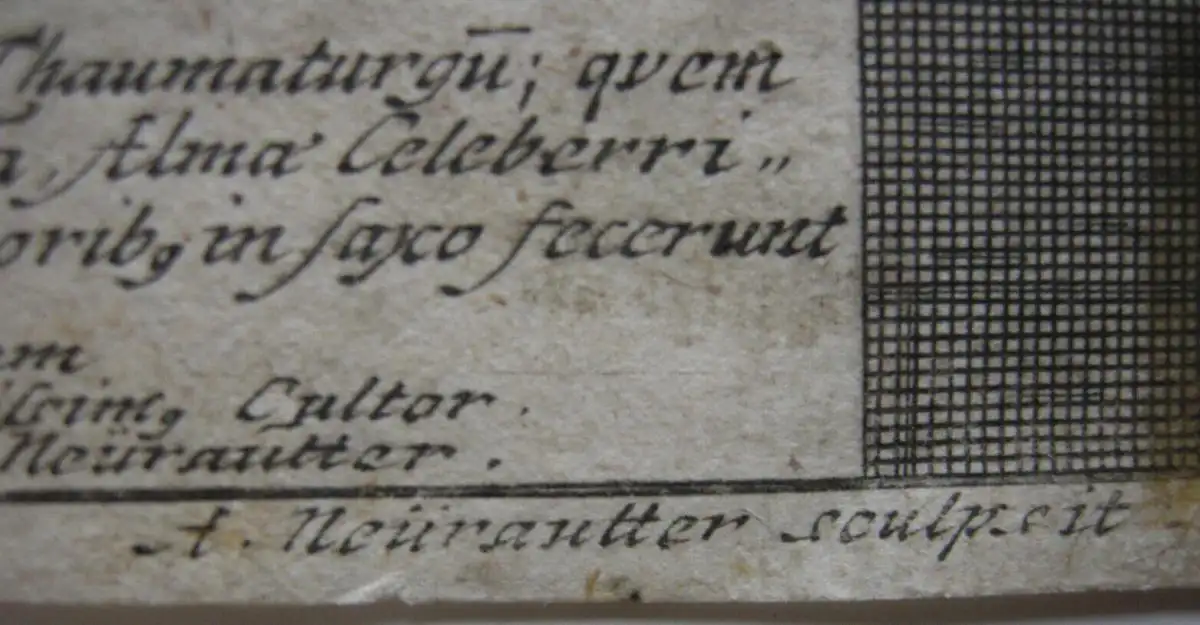 Thaumaturgū; qvem
a, Almæ Celeberri„
oribꝯ in ſaxo fecerunt
em
Cultor.
Neürautter.
A. Neürautter sculpsit